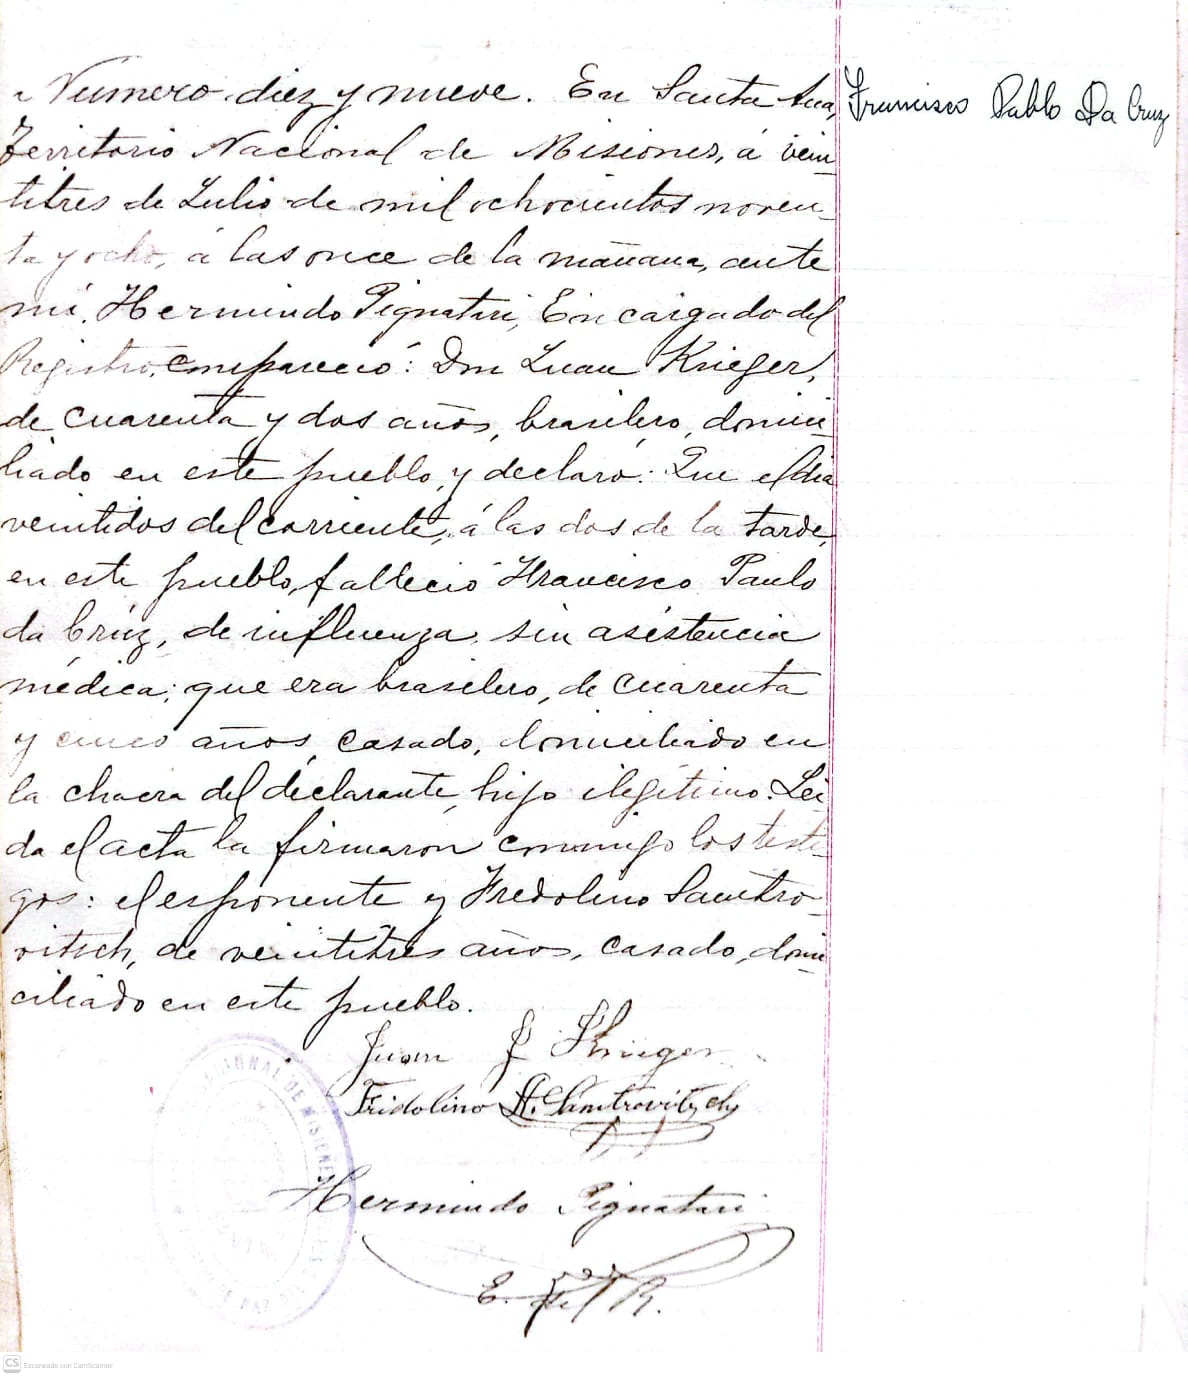 Numero diez y nueve. En Santa Ana,
Francisco Pablo Da Cruz
Territorio Nacional de Misiones, á vein
titres de Julio de mil ochocientos noven_
ta y ocho, á las once de la mañana, ante
mí, Hermindo Pignatari, Encargado del
Registro, compareció: Don Juan Krieger,
de cuarenta y dos años, brasilero, domici_
liado en este pueblo, y declaró: Que el dia
veintidos del corriente, á las dos de la tarde,
en este pueblo, falleció Francisco Paulo
da Crúz, de influenza, sin asistencia
médica; que era brasilero, de cuarenta
y cinco años, casado, domiciliado en
la chacra del declarante, hijo ilegítimo. Lei_
da el acta la firmaron conmigo los testi_
gos: el esponente y Fredolino Samtro_
vitsch, de veintitres años, casado, domi_
ciliado en este pueblo.
Juan Krieger
Fridolino A. Samtrovitsch
NACIONAL DE MISIONES
DE PAZ
Hermindo Pignatari
E. del R.
CS Escaneado con CamScanner